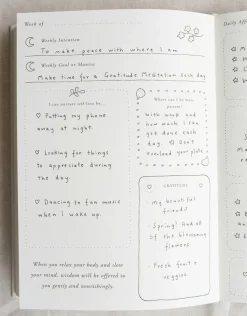 Week of
Weekly Intention
To make peace with where I am
Weekly Goal or Mantra
Make time for a Gratitude Meditation each day
Putting my phone
away at night.
Looking for things
to appreciate during
the day.
Dancing to fun music
when I woke up.
When you relax your body and clear
your mind, wisdom will be offered to
you gently and nourishingly.
Where can I be more
present?
With work and
how much I can
get done each
day. Don't
overload your plate.
GRATITUDE
My beautiful
friends!
Spring! And all
of the blooming
flowers.
Fresh fruit &
veggies.
Daily Aff